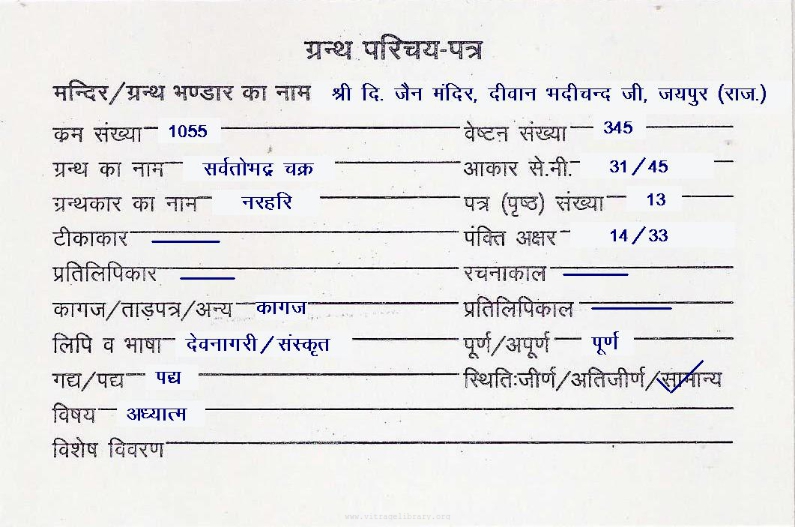 ग्रन्थ परिचय-पत्र
मन्दिर/ग्रन्थ भण्डार का नाम श्री दि. जैन मंदिर, दीवान भदीचन्द जी, जयपुर (राज.)
कम संख्या 1055 वेष्टन संख्या 345
ग्रंथ का नाम सर्वतोभद्र चक्र आकार से.मी. 31/45
ग्रन्थकार का नाम नरहरि पत्र (पृष्ठ) संख्या 13
टीकाकार पंक्ति अक्षर 14/33
प्रतिलिपिकार रचनाकाल
कागज/ताड़पत्र/अन्य कागज प्रतिलिपिकाल
लिपि व भाषा देवनागरी/संस्कृत पूर्ण/अपूर्ण पूर्ण
गद्य/पद्य पद्य स्थितिःजीर्ण/अतिजीर्ण/सामान्य
विषय अध्यात्म
विशेष विवरण